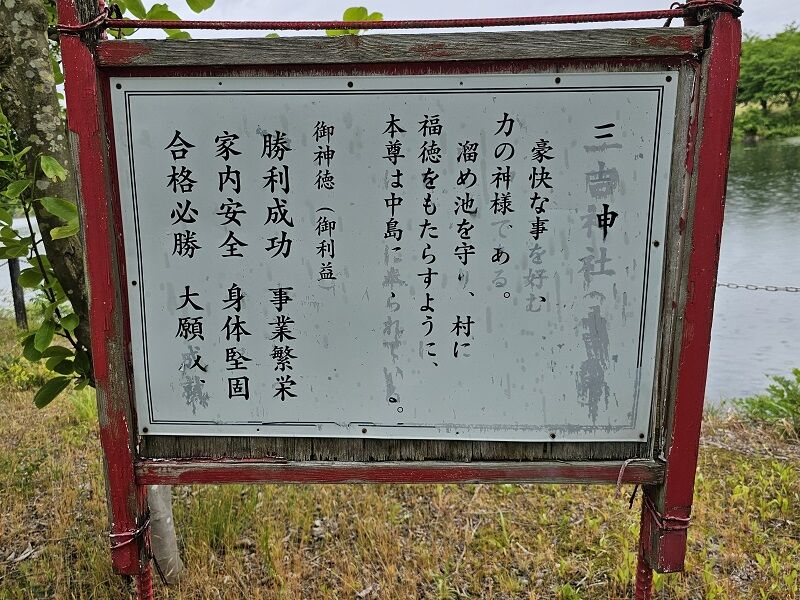 三吉神社
豪快な事を好む、
力の神様である。
溜め池を守り、村に
福徳をもたらすように、
本尊は中島に奉られている。
御神徳(御利益)
勝利成功 事業繁栄
家内安全 身体堅固
合格必勝 大願成就